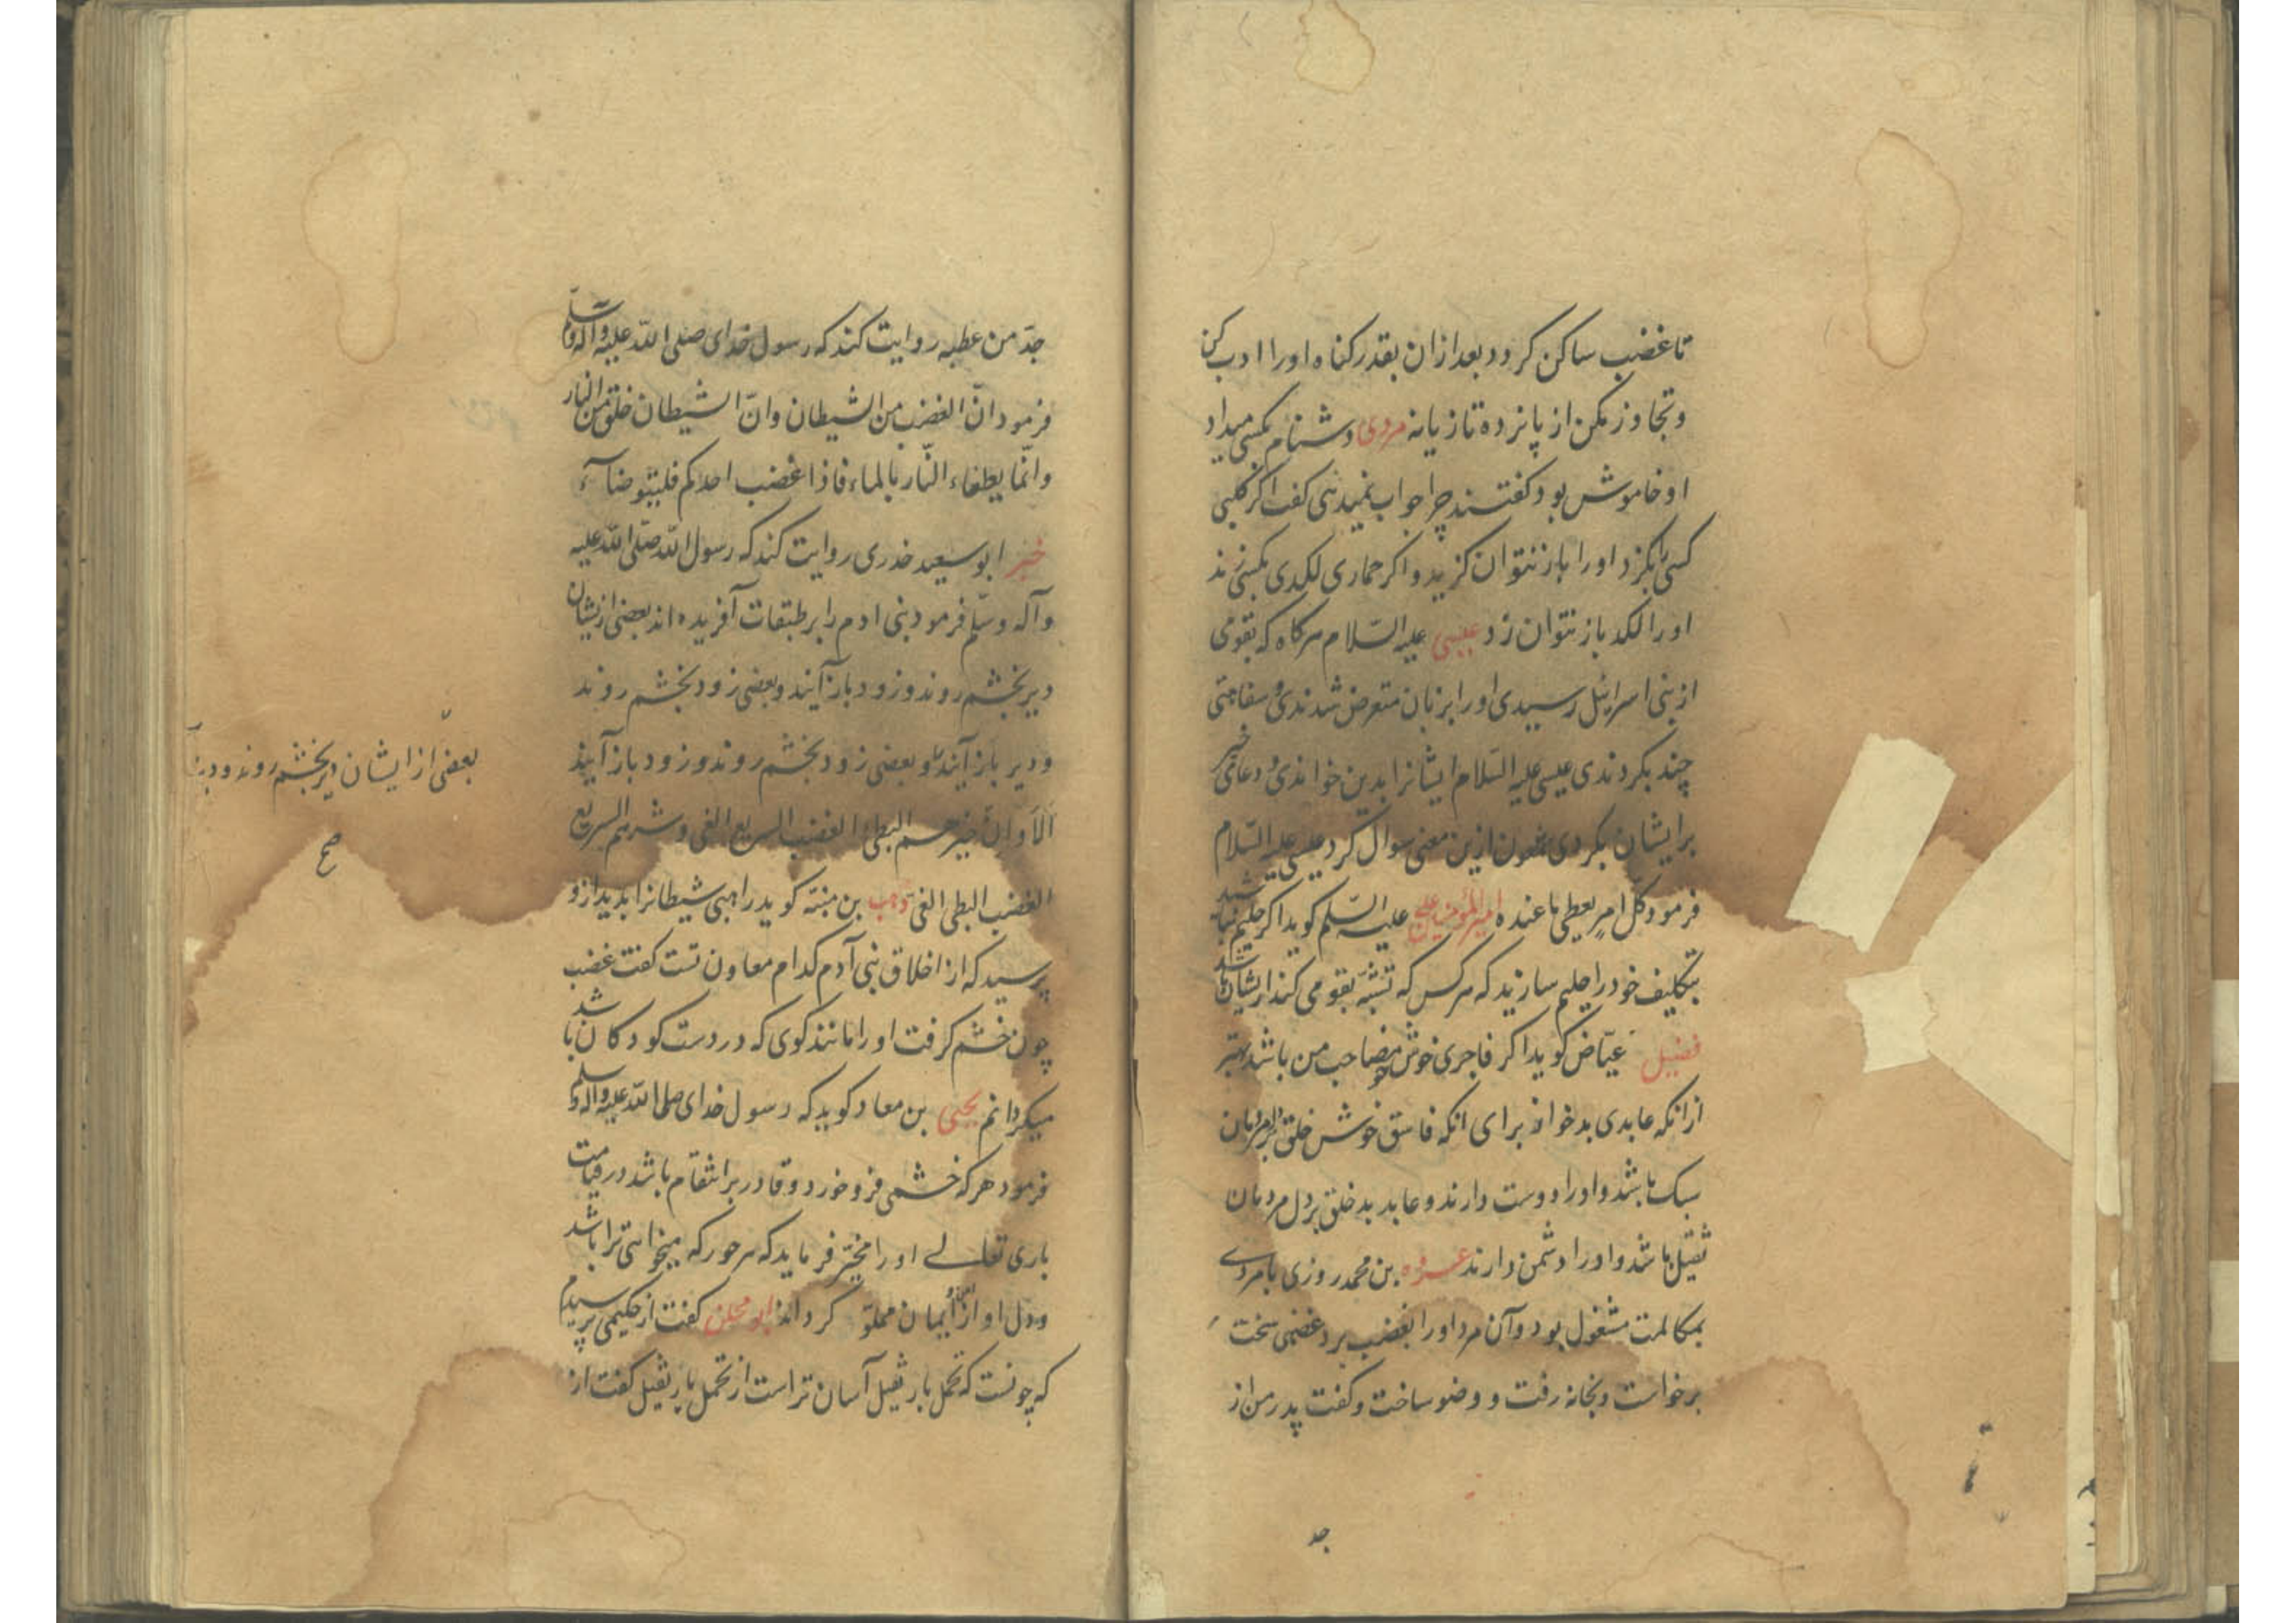 تا غضب ساکن کردد بعد ازان بقدر کناه او را ادب کن
و تجاوز مکن از پانزده تازیانه مردی دشنام بکسی میداد
او خاموش بود کفتند چرا جواب نمیدهی کفت اکر کلبی
کسی را بکزد او را باز نتوان کزید و اکر حماری لکدی بکسی زند
او را لکد باز نتوان زد عیسی علیه السّلام هرکاه که بقومی
از بنی اسرائیل رسیدی او را بزبان متعرض شدندی و سفاهتی
چند بکردندی عیسی علیه السّلام ایشانرا بدین خواندی و دعای خیر
بر ایشان بکردی شمعون ازین معنی سوال کرد عیسی علیه السّلام
فرمود کلّ امرٍ یعطی ما عنده امیر المؤمنین علی علیه السّلم کوید اکر حلیم نباشید
بتکلیف خود را حلیم سازید که هر کس که تشبّه بقومی کند از یشان باشد
فضیل عیّاض کوید اکر فاجری خوش خو مصاحب من باشد بهتر
از انکه عابدی بدخو از برای انکه فاسق خوش خلق بر مردمان
سبک باشد و او را دوست دارند و عابد بد خلق بر دل مردمان
ثقیل باشد و او را دشمن دارند عروه بن محمد روزی با مردی
بمکالمت مشغول بود و آن مرد او را بغضب برد غضبی سخت
برخواست و بخانه رفت و وضو ساخت و کفت پدر من از
جد
جدّ من عطیه روایت کند که رسول خدای صلی اللّه علیه و آله و سلّم
فرمود انّ الغضب من الشیطان و انّ الشیطان خلق من النار
و انّما یطفاء النّار بالماء فاذا غضب احدکم فلیتوضاء
خبر ابو سعید خدری روایت کند که رسول اللّه صلّی اللّه علیه
و آله و سلّم فرمود بنی ادم را بر طبقات آفریده اند بعضی از یشان
دیر بخشم روند و زود باز آیند و بعضی زود بخشم روند
و دیر باز آیند و بعضی زود بخشم روند و زود باز آیند
بعضی از ایشان دیر بخشم روند و دیر
الا و انّ خیرهم البطی الغضب السریع الفی و شرهم السریع
صح
الغضب البطی الفی وهب بن منبّه کوید راهبی شیطانرا بدید ازو
پرسید که از اخلاق بنی آدم کدام معاون تست کفت غضب
چون خشم کرفت او را مانند کوی که در دست کودکان باشد
میکردانم یحیی بن معاذ کوید که رسول خدای صلی اللّه علیه و آله و سلم
فرمود هر که خشمی فرو خورد و قادر بر انتقام باشد در قیامت
باری تعالی او را مخیّر فرماید که هر حور که میخواهی ترا باشد
و دل او از ایمان مملوّ کرداند کفت از حکیمی پرسیدم
که چونست که تحمل بار ثقیل آسان تر است از تحمل یار ثقیل کفت از